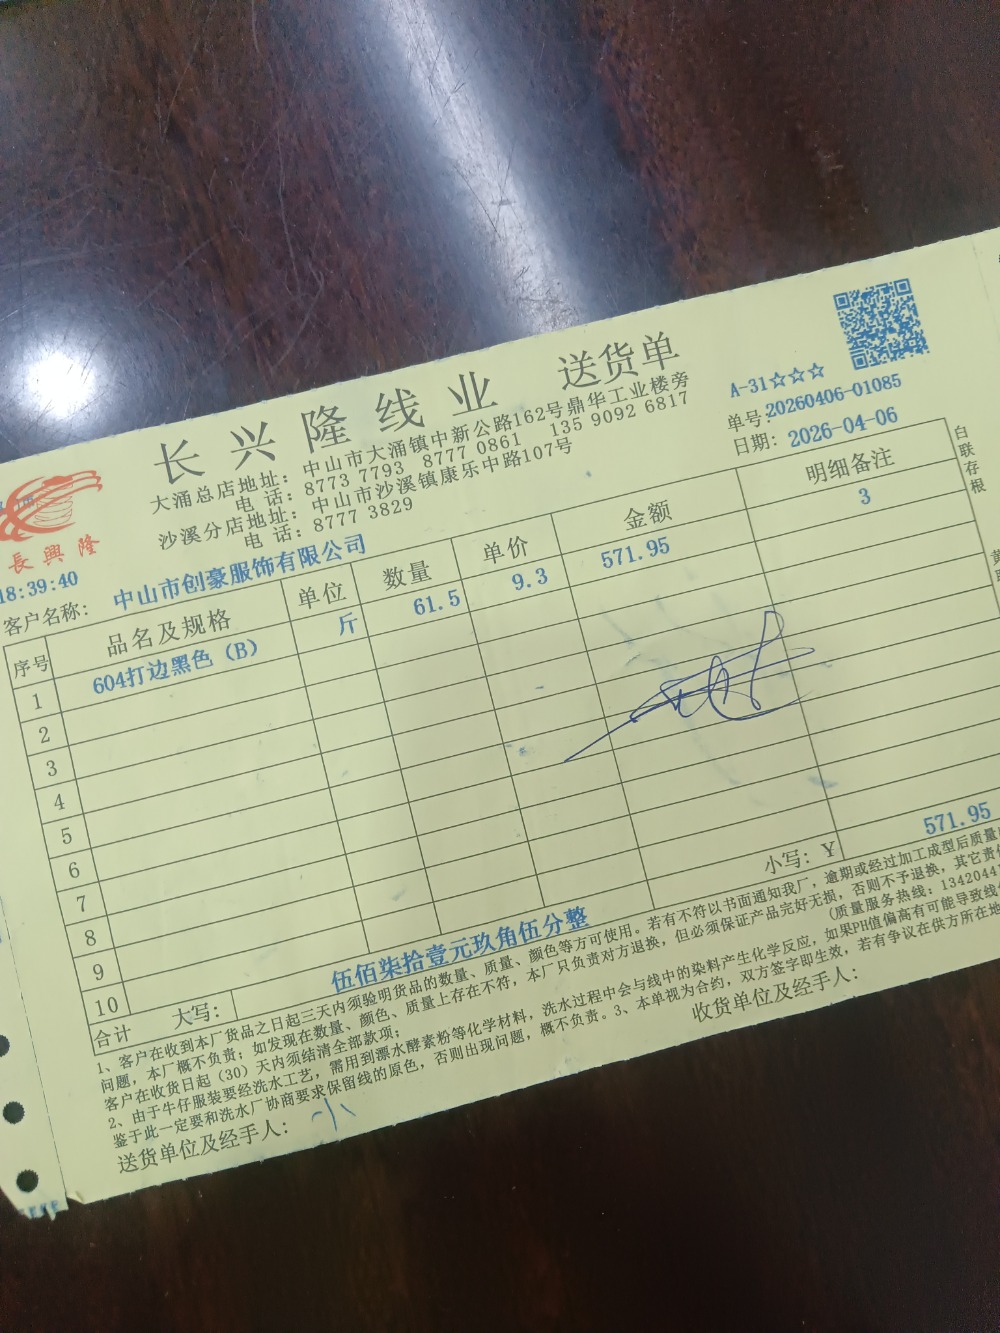 长兴隆线业 送货单
大涌总店地址：中山市大涌镇中新公路162号鼎华工业楼旁
电 话：8773 7793 8777 0861 135 9092 6817
沙溪分店地址：中山市沙溪镇康乐中路107号
电 话：8777 3829
A-31☆☆☆
单号:20260406-01085
日期: 2026-04-06
長興隆
18:39:40
客户名称： 中山市创豪服饰有限公司
序号 品名及规格 单位 数量 单价 金额 明细备注
1 604打边黑色（B） 斤 61.5 9.3 571.95 3
2
3
4
5
6
7
8
9
10
合计 大写： 伍佰柒拾壹元玖角伍分整 小写：￥ 571.95
1、客户在收到本厂货品之日起三天内须验明货品的数量、质量、颜色等方可使用。若有不符以书面通知我厂，逾期或经过加工成型后质量
问题，本厂概不负责；如发现在数量、颜色、质量上存在不符，本厂只负责对方退换，但必须保证产品完好无损，否则不予退换，其它责
客户在收货日起（30）天内须结清全部款项； （质量服务热线：1342044
2、由于牛仔服装要经洗水工艺，需用到漂水酵素粉等化学材料，洗水过程中会与线中的染料产生化学反应，如果PH值偏高有可能导致线
鉴于此一定要和洗水厂协商要求保留线的原色，否则出现问题，概不负责。3、本单视为合约，双方签字即生效，若有争议在供方所在地
送货单位及经手人： 收货单位及经手人：
白联存根
黄